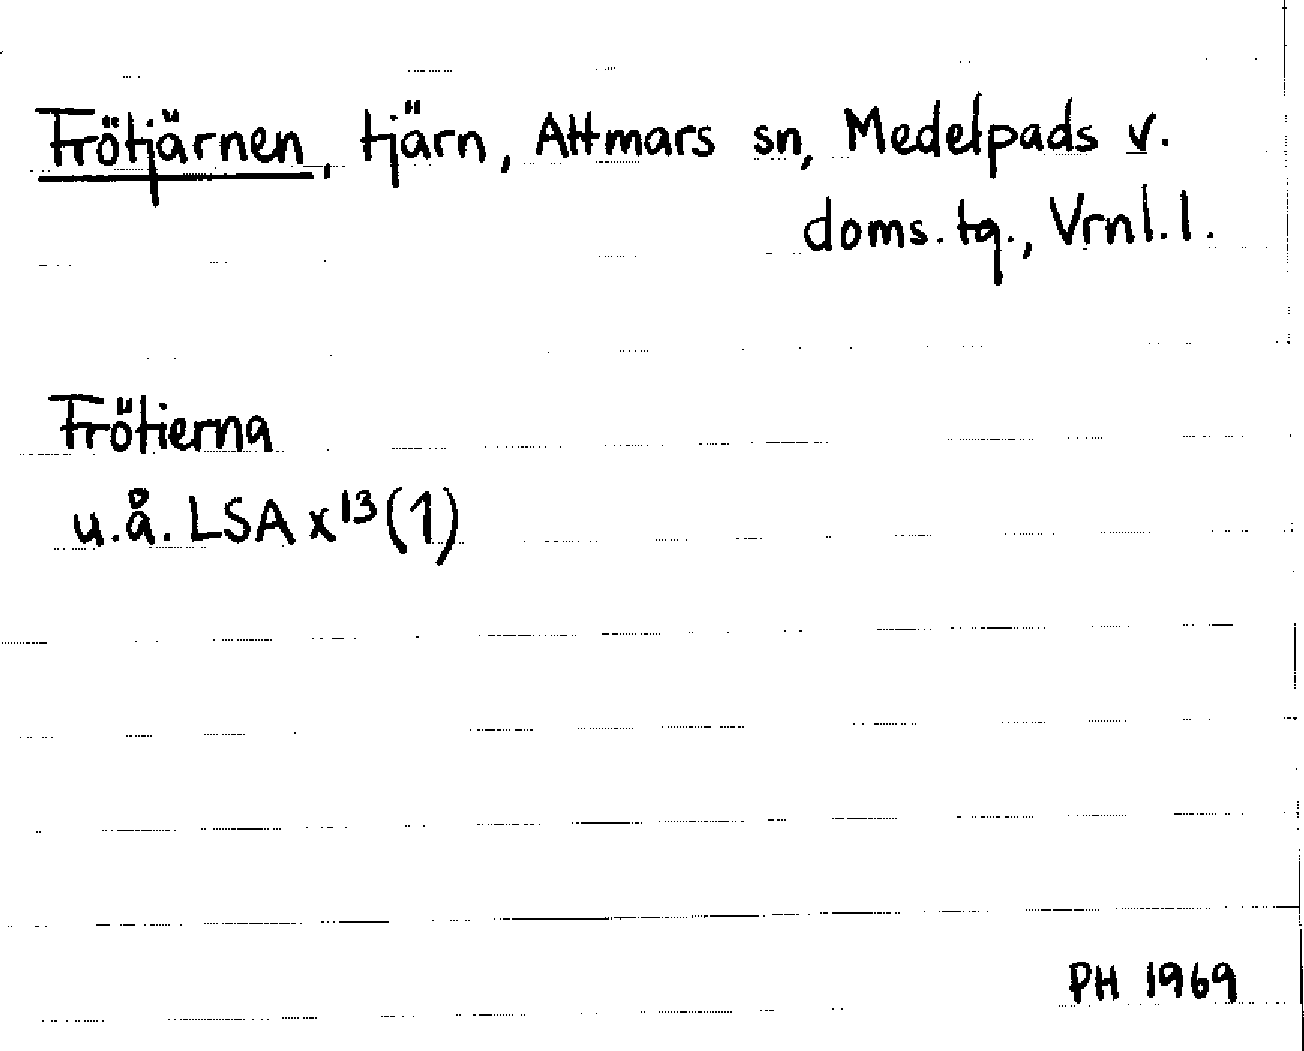 Frötjärnen, tjärn, Attmars sn, Medelpads v.
doms.tg., Vrnl.l.
Frötierna
u.å. LSA x¹³(1)
PH 1969